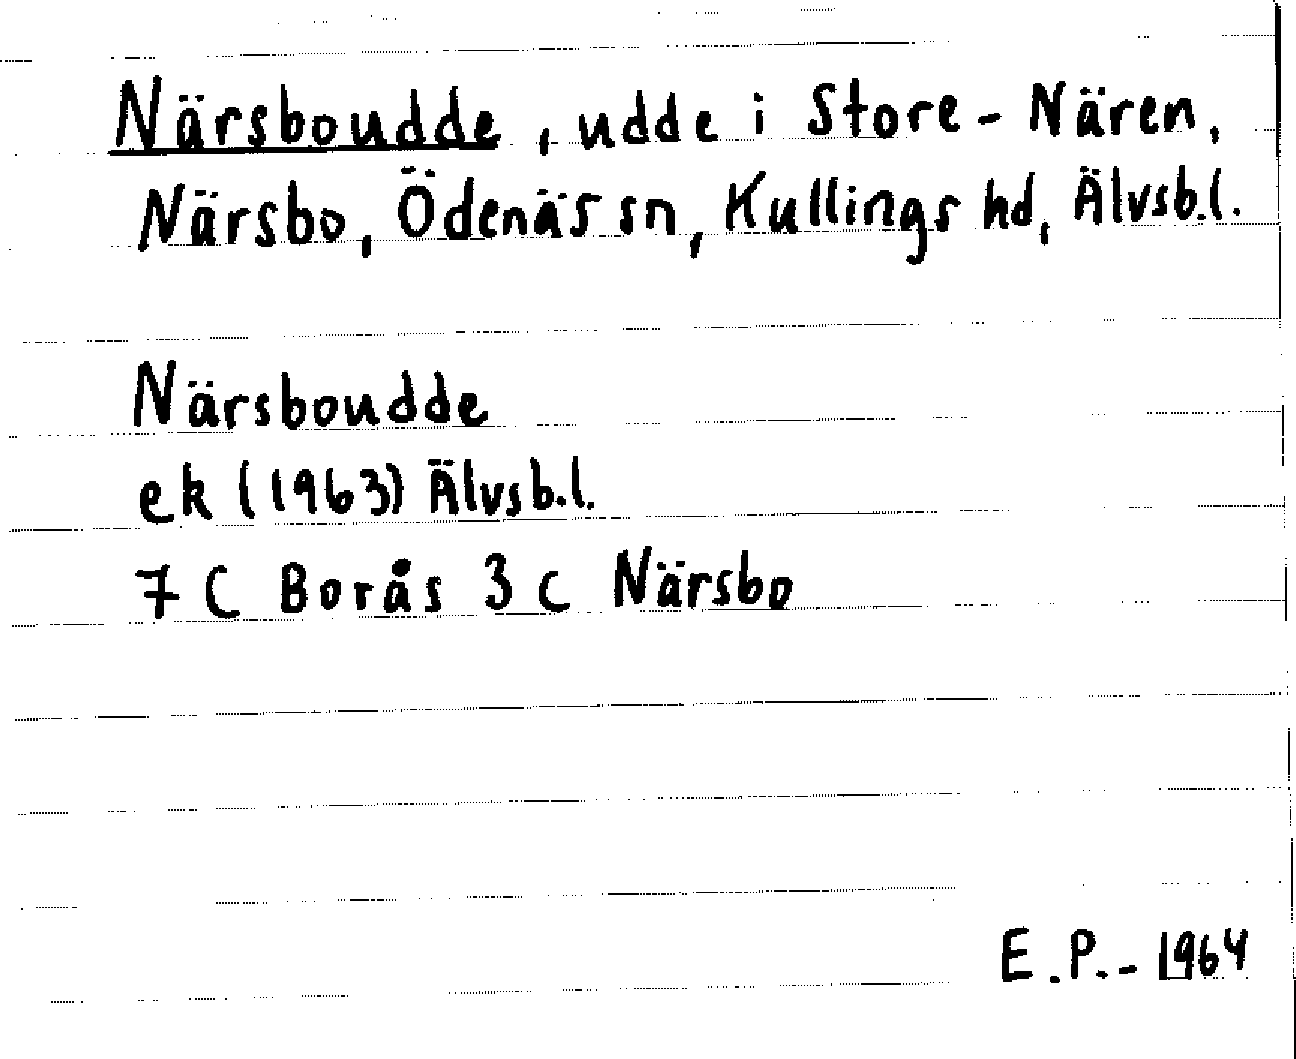 Närsboudde, udde i Store-Nären,
Närsbo, Ödenäs sn, Kullings hd, Älvsb.l.
Närsboudde
ek (1963) Älvsb.l.
7 C Borås 3 c Närsbo
E.P.-1964